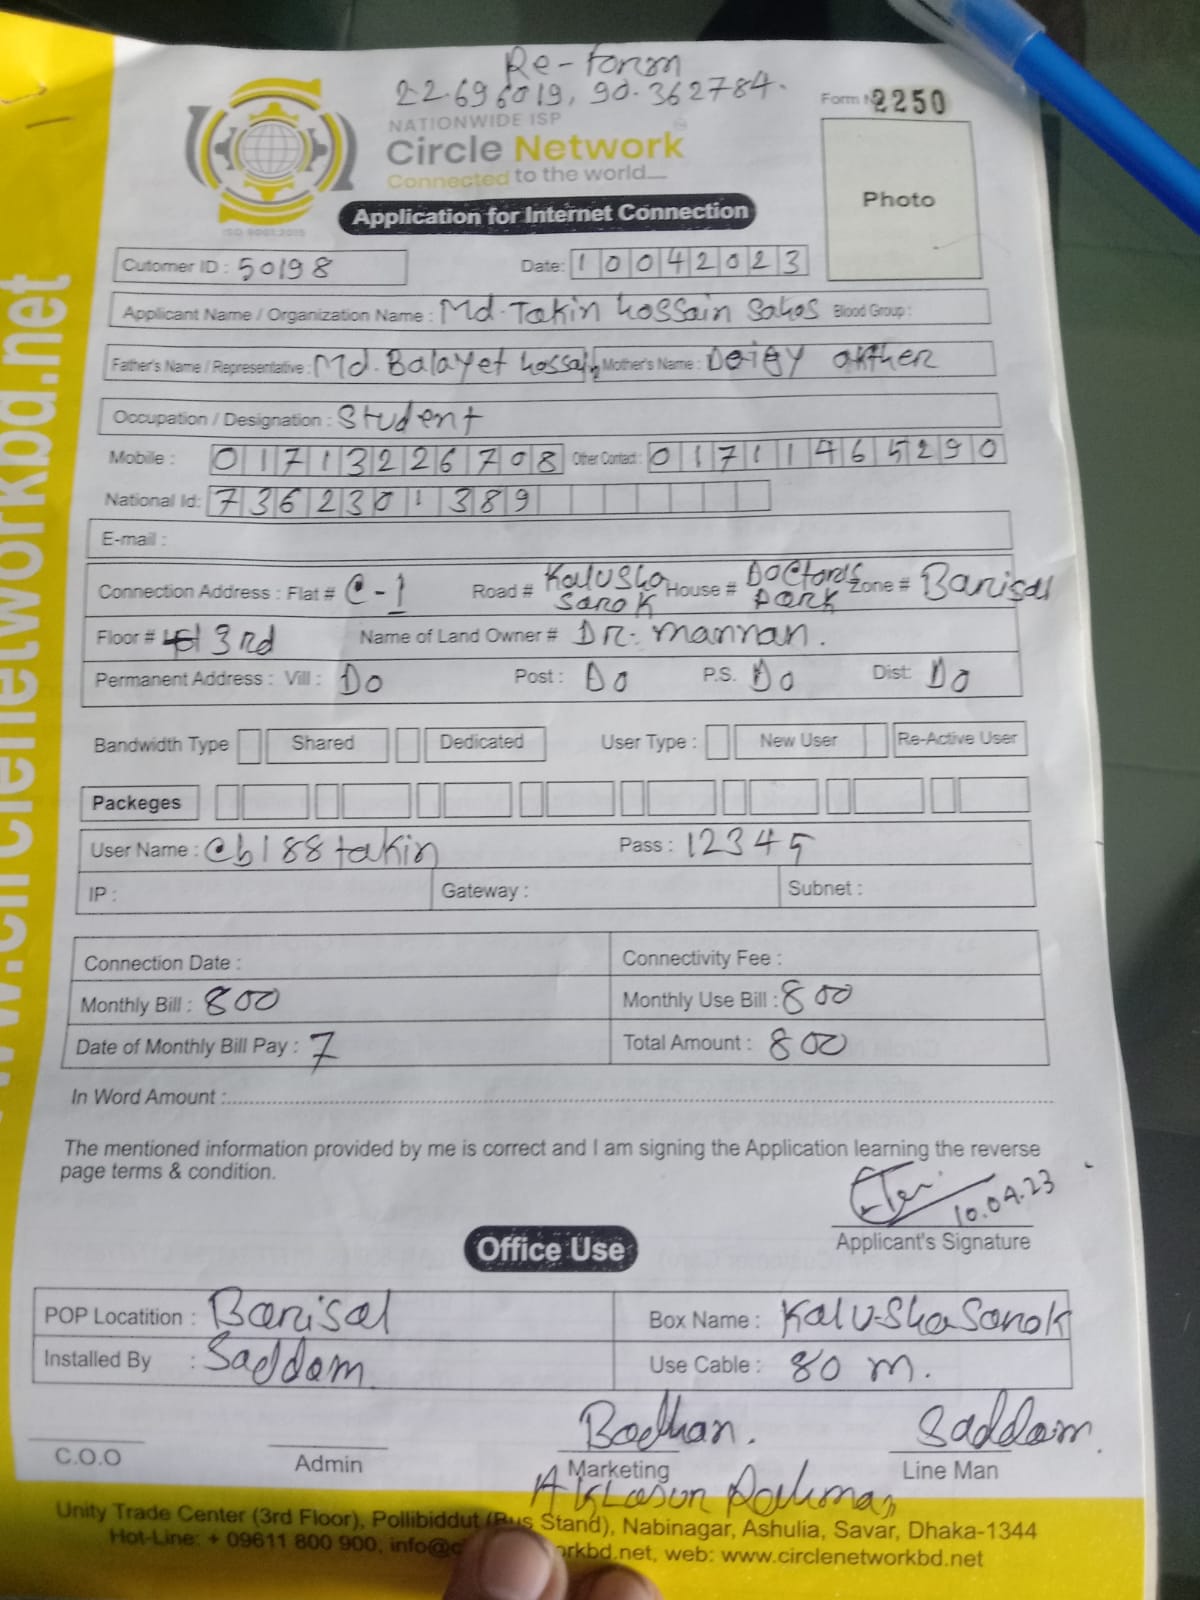 Re-form
22.696019, 90.362784.
NATIONWIDE ISP
Form № 2250
Circle Network
Connected to the world...
Photo
Application for Internet Connection
ISO 9001:2015
Cutomer ID : 50198 Date: 10042023
Applicant Name / Organization Name : Md. Takin Hossain Blood Group :
Father's Name / Representative : Md. Balayet Hossain Mother's Name : akther
Occupation / Designation : Student
Mobile : 01713226708 Other Contact : 01711465290
National Id: 7362301389
E-mail :
Connection Address : Flat # C-1 Road # Kalusha Sarok House # Doctors Park Zone # Barisal
Floor # 3rd Name of Land Owner # Dr. Mannan.
Permanent Address : Vill : Do Post : Do P.S. Do Dist: Do
Bandwidth Type Shared Dedicated User Type : New User Re-Active User
Packeges
User Name : cb188takin Pass : 12345
IP : Gateway : Subnet :
Connection Date : Connectivity Fee :
Monthly Bill : 800 Monthly Use Bill : 800
Date of Monthly Bill Pay : 7 Total Amount : 800
In Word Amount :
The mentioned information provided by me is correct and I am signing the Application learning the reverse
page terms & condition.
10.04.23
Applicant's Signature
Office Use
POP Locatition : Barisal Box Name : Kalu-Sha Sarok
Installed By : Saddam Use Cable : 80 m.
Badhan. Saddam.
C.O.O Admin Marketing Line Man
Rahman
Unity Trade Center (3rd Floor), Pollibiddut (Bus Stand), Nabinagar, Ashulia, Savar, Dhaka-1344
Hot-Line: + 09611 800 900, web: www.circlenetworkbd.net
www.circlenetworkbd.net